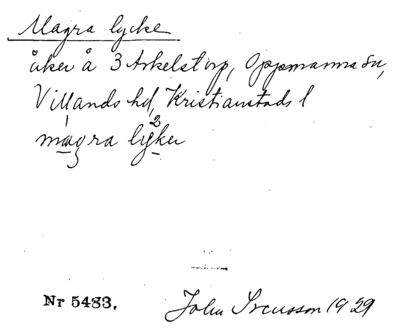 Magra lycke
åker å 3 Arkelstorp, Oppmanna sn,
Villands hd, Kristianstads l
magra lyker
Nr 5483. John Svensson 1929